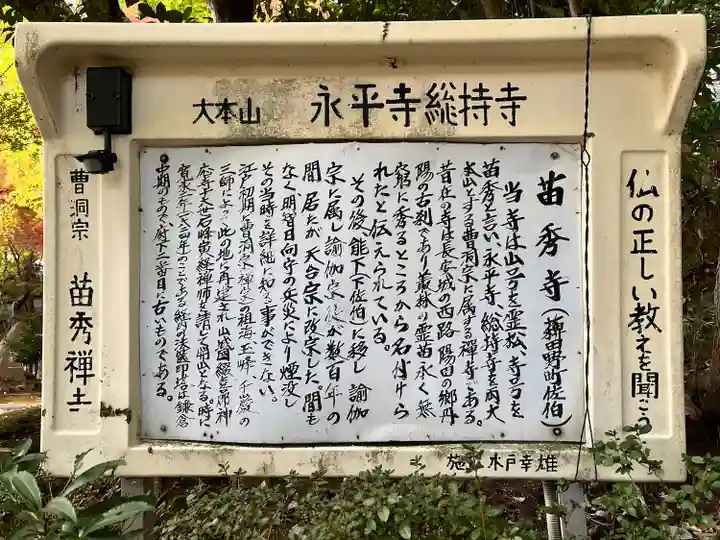 大本山 永平寺総持寺
仏の正しい教えを聞こう
苗秀寺(薭田野町佐伯)。
当寺は山号を霊松、寺号を
苗秀と言い、永平寺、総持寺を両大
本山とする曹洞宗に属する禅寺である。
昔在の寺は長安城の西路陽田の郷丹
陽の古刹であり叢林の霊苗永く無
窮に秀るところから名付けら
れたと伝えられている。
その後、能下(下佐伯)に移し諭伽
宗に属し諭伽宗徒が数百年の
間居たが、天台宗に改宗した。間も
なく明智日向守の兵災により煙没し
その当時を詳細に知る事ができない。
江戸初期に曹洞宗禅門の祖海、玉峰、千巌の
三師によって此の地に再建され
中期のもので府下二番目に古いものである。
曹洞宗 苗秀禅寺
施主 木戸幸雄